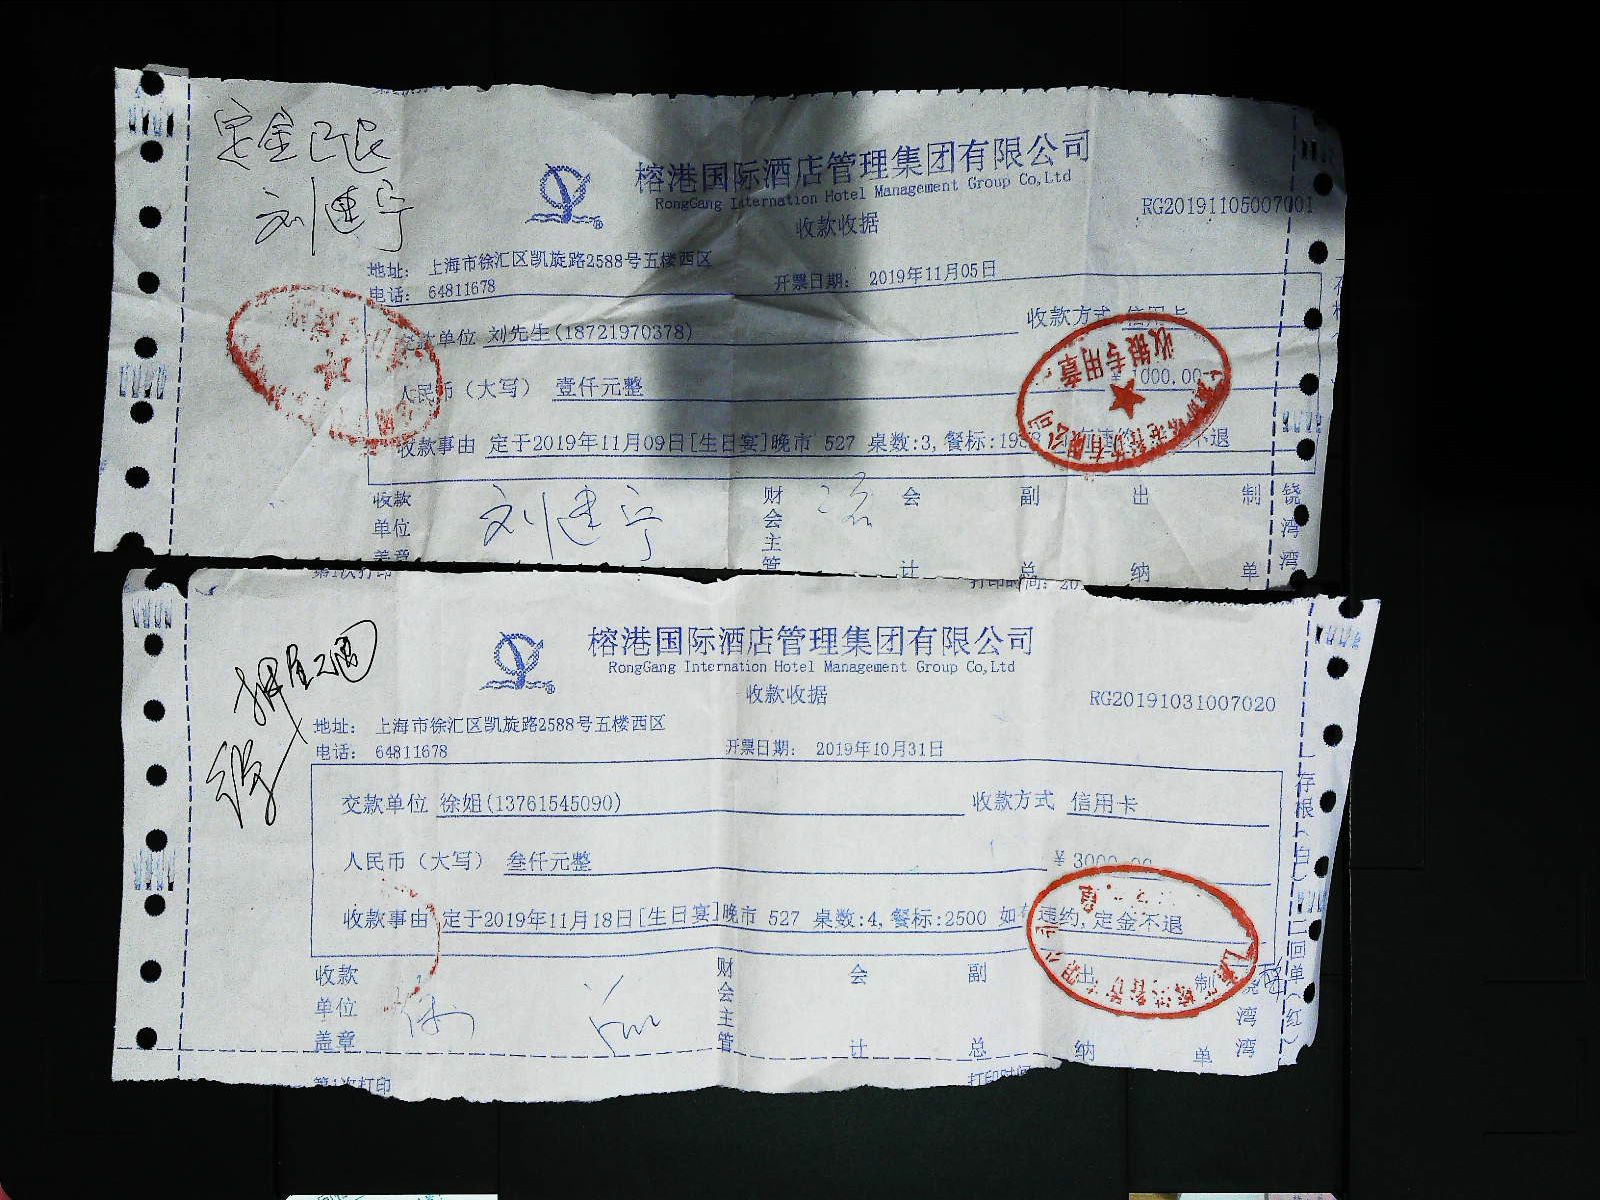 定金已退
刘建宁
榕港国际酒店管理集团有限公司
RongGang Internation Hotel Management Group Co,Ltd
收款收据
RG20191105007001
地址: 上海市徐汇区凯旋路2588号五楼西区
电话: 64811678
开票日期: 2019年11月05日
款单位 刘先生(18721970378)
收款方式 信用卡
人民币（大写） 壹仟元整
1000.00
收银专用章
收款事由 定于2019年11月09日[生日宴]晚市 527 桌数:3,餐标:19 不退
收款单位盖章
刘建宁
财会主管
会计
副总
出纳
制单
饶湾湾
第1次打印
打印时间: 20
押金已退
榕港国际酒店管理集团有限公司
RongGang Internation Hotel Management Group Co,Ltd
收款收据
RG20191031007020
地址: 上海市徐汇区凯旋路2588号五楼西区
电话: 64811678
开票日期: 2019年10月31日
交款单位 徐姐(13761545090)
收款方式 信用卡
人民币（大写） 叁仟元整
￥3000.00
收款事由 定于2019年11月18日[生日宴]晚市 527 桌数:4,餐标:2500 如有违约,定金不退
收款单位盖章
财会主管
会计
副总
出纳
制单
饶湾湾
一存根(白)二回单(红)
第1次打印
打印时间